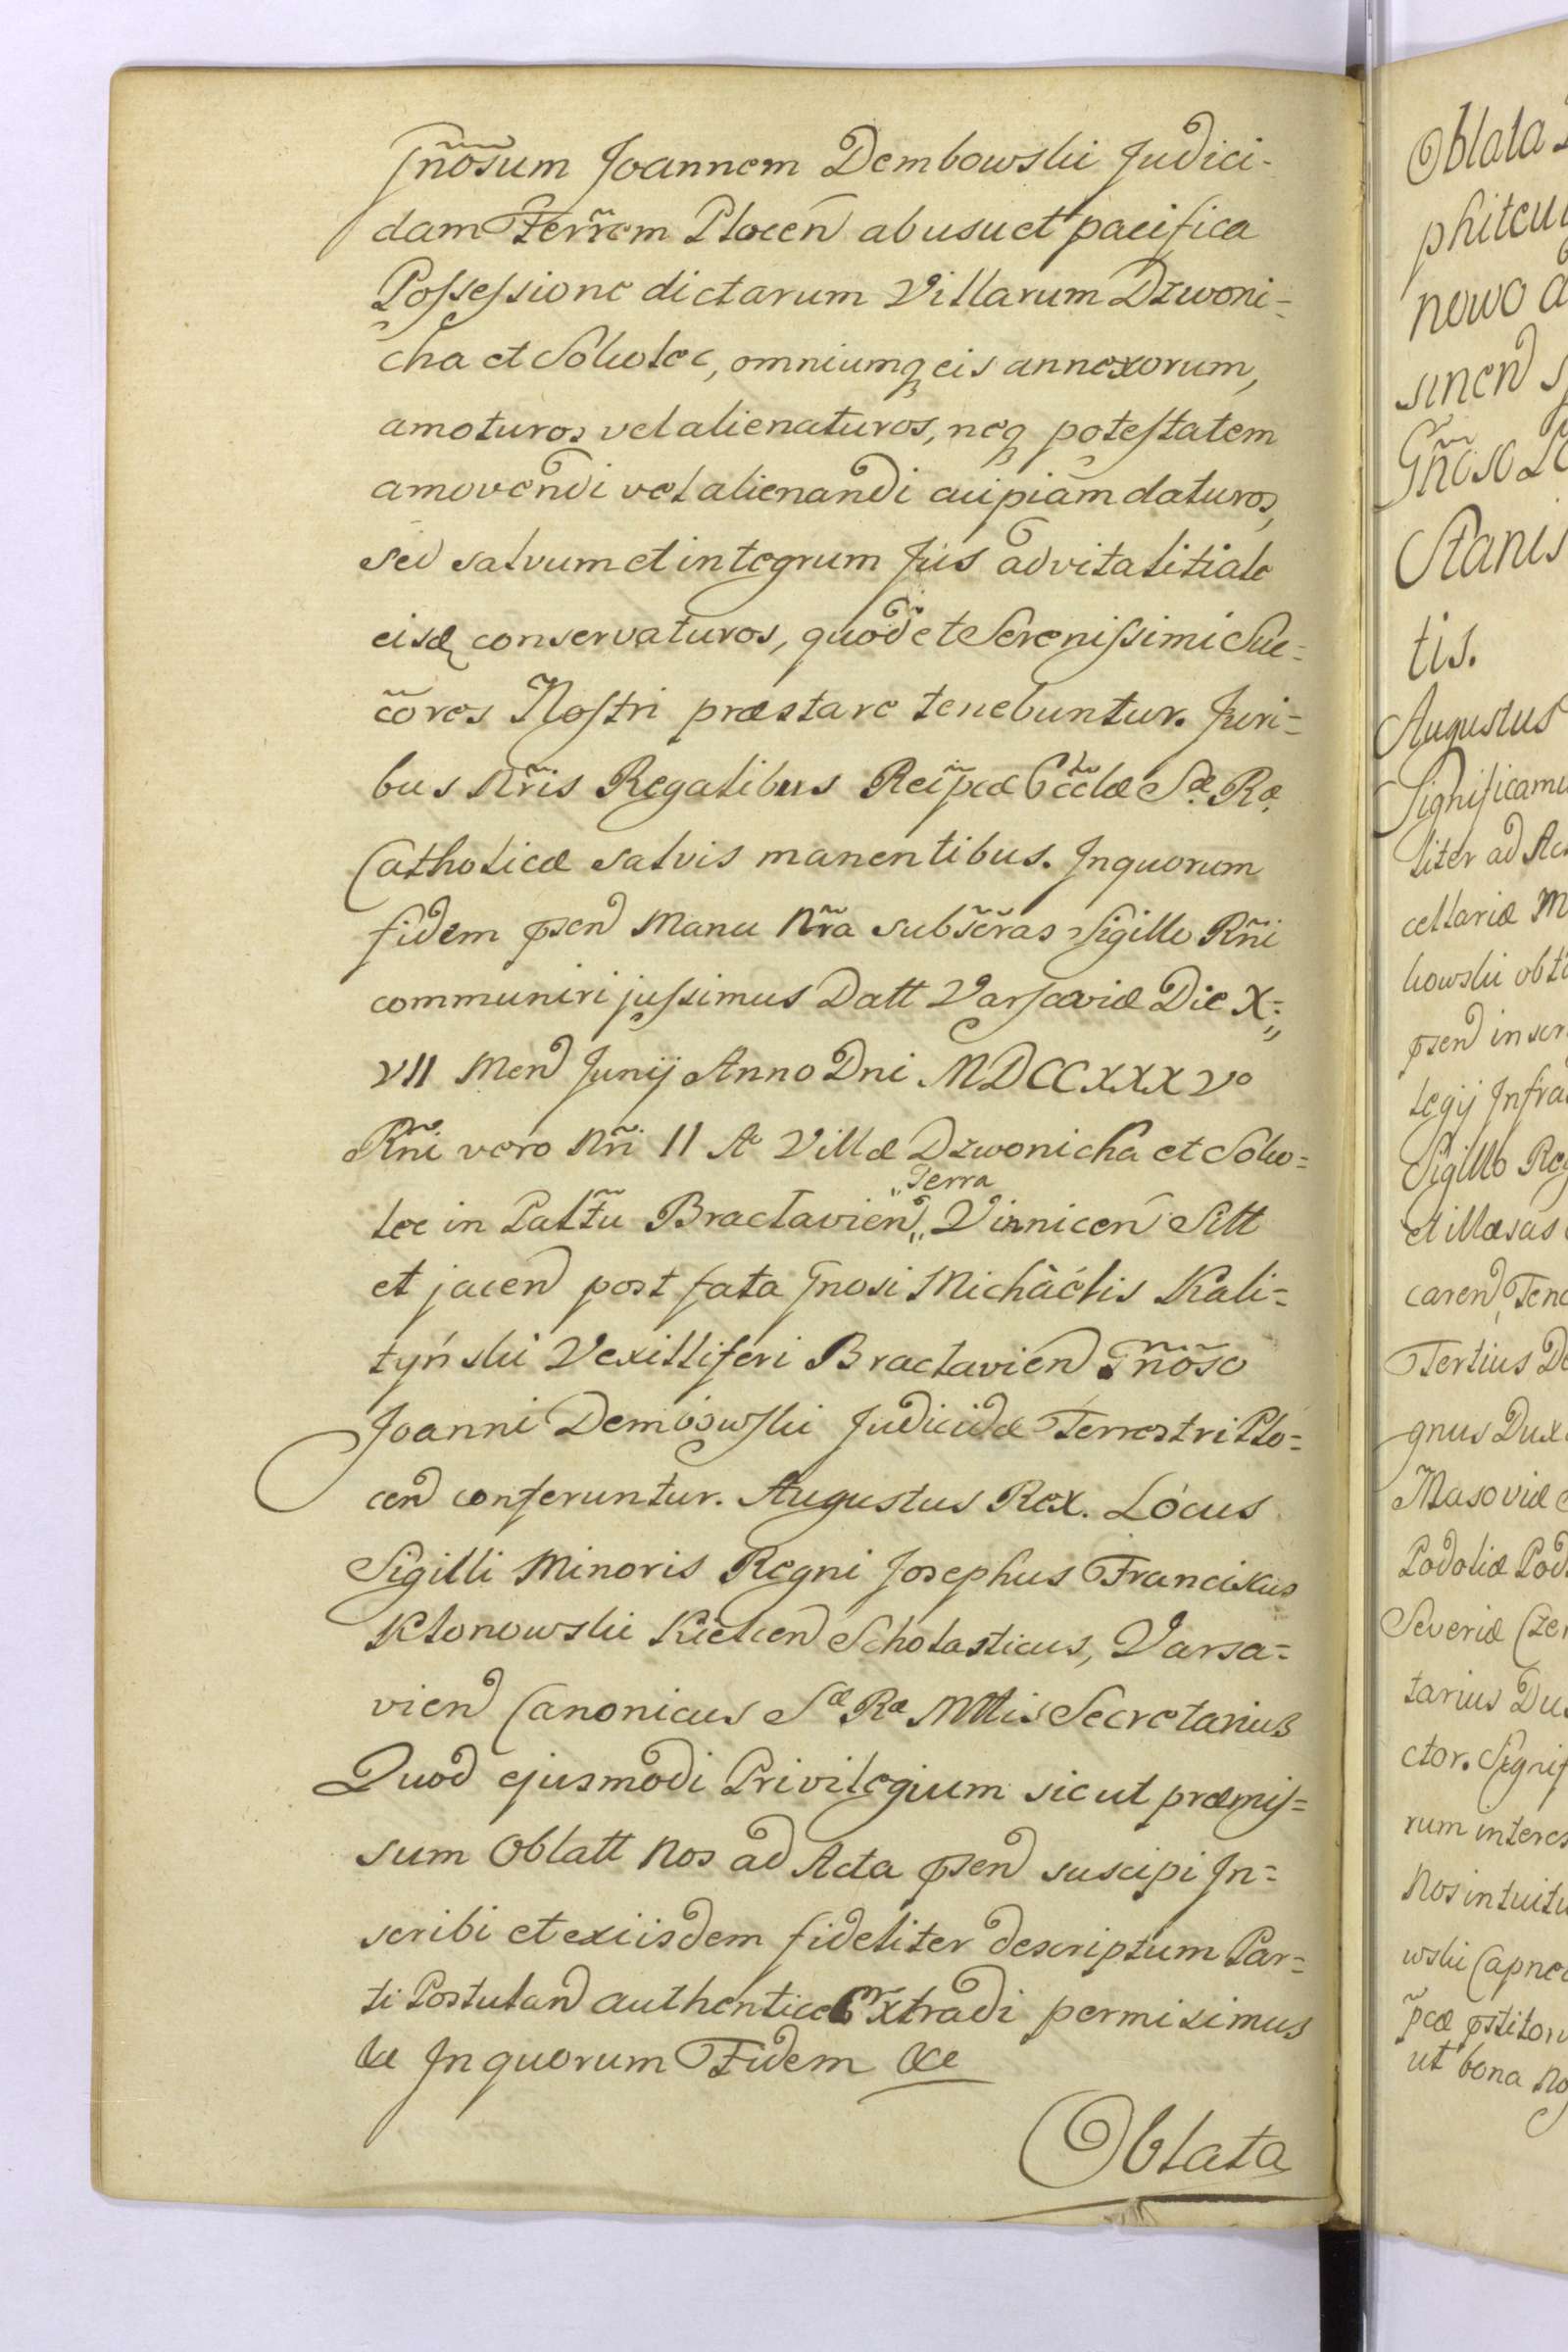 Gñosum Joannem Dembowski Judici-
dam Terrēm Plocen ab usu et pacifica
Possessione dictarum Villarum Dzwoni=
cha et Sokolec, omniumq̨ eis annexorum,
amoturos vel alienaturos, neq̨ potestatem
amovendi vel alienandi cuipiam daturos,
sed salvum et integrum Jus advitalitiale
eisd conservaturos, quod et Serenissimi Suc=
c̃ores Nostri præstare tenebuntur. Juri=
bus Nr̃is Regalibus Reip̃cæ Ecc̃læ Sæ. Ræ.
Catholicæ salvis manentibus. In quorum
fidem psen Manu Nr̃a subsc̃ras Sigillo Rñi
communiri jussimus Datt Varsaviæ Die X=
VII Men Junij Anno Dni MDCCXXXVo
Rñi vero Nr̃i II Ao Villæ Dzwonicha et Soko=
lec in Palt̃tu Braclavien „Terra„ Vinnicen Sitt
et jacen post fata Gnosi Michäelis Kali=
tyński Vexilliferi Braclavien Gñoso
Joanni Dembowski Judicidæ Terrestri Plo=
cen conferuntur. Augustus Rex. Locus
Sigilli Minoris Regni Josephus Franciscus
Klonowski Kielcen Scholasticus, Varsa=
vien Canonicus Sæ Ræ Mttis Secretarius
Quod ejusmodi Privilegium sicut præmis=
sum Oblatt Nos ad Acta psen suscipi In=
scribi et ex iisdem fideliter descriptum Par=
ti Postulan authentice Extradi permisimus
&c In quorum Fidem &c
Oblata
Oblata
phiteu
nowo
sinen
Gñoso
Stanis
tis.
Augustus
Significamu
liter ad Ac
cellariæ M
kowski obt
psen in scr
legij Infra
Sigillo Reg
et illæsas
caren, Teno
Tertius De
gnus Dux
Masoviæ
Podoliæ Pod
Severiæ Czer
tarius Du
ctor. Signif
rum interes
Nos intuitu
wski Capne
p̃cæ pstitor
ut bona no